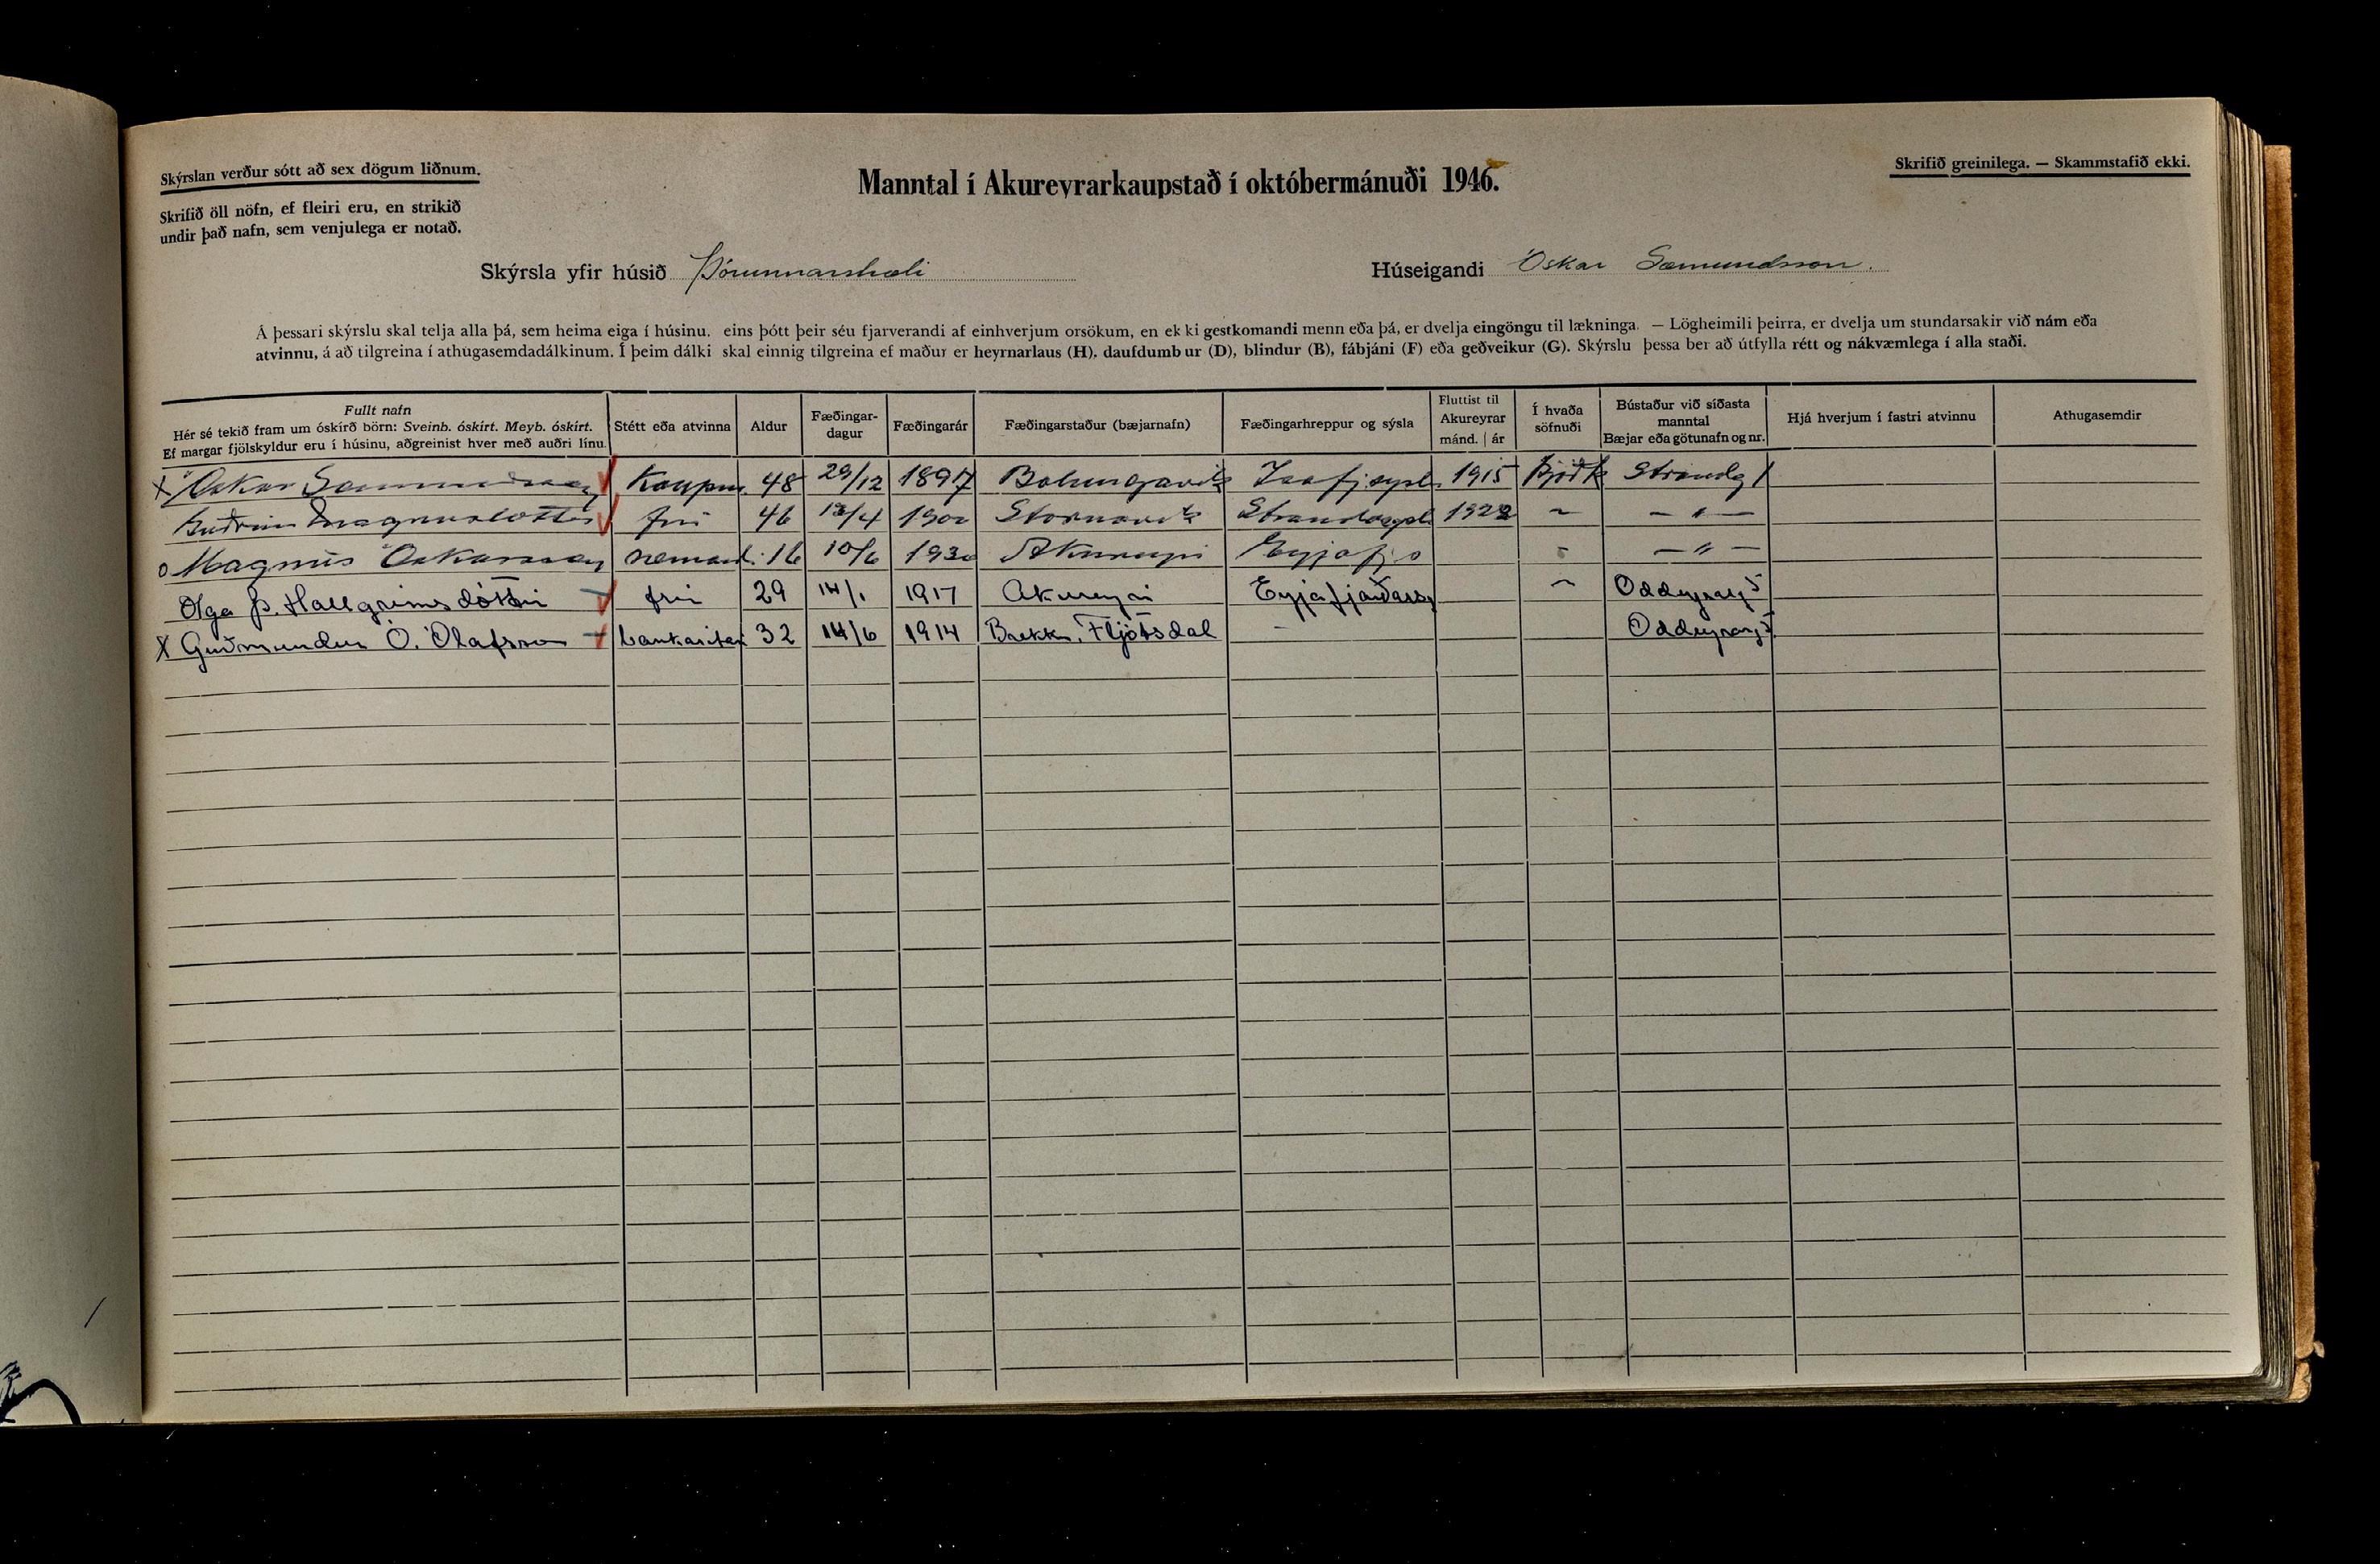 Skýrslan verður sótt að sex dögum liðnum.
Skrifið öll nöfn, ef fleiri eru, en strikið
undir það nafn, sem venjulega er notað.
Manntal í Akureyrarkaupstað í októbermánuði 1946.
Skrifið greinilega. — Skammstafið ekki.
Skýrsla yfir húsið Þórunnarstræti
Húseigandi Óskar Sæmundsson.
Á þessari skýrslu skal telja alla þá, sem heima eiga í húsinu, eins þótt þeir séu fjarverandi af einhverjum orsökum, en ekki gestkomandi menn eða þá, er dvelja eingöngu til lækninga. — Lögheimili þeirra, er dvelja um stundarsakir við nám eða
atvinnu, á að tilgreina í athugasemdadálkinum. Í þeim dálki skal einnig tilgreina ef maður er heyrnarlaus (H), daufdumbur (D), blindur (B), fábjáni (F) eða geðveikur (G). Skýrslu þessa ber að útfylla rétt og nákvæmlega í alla staði.
Fullt nafn
Hér sé tekið fram um óskírð börn: Sveinb. óskírt. Meyb. óskírt.
Ef margar fjölskyldur eru í húsinu, aðgreinist hver með auðri línu.
Stétt eða atvinna
Aldur
Fæðingar-
dagur
Fæðingarár
Fæðingarstaður (bæjarnafn)
Fæðingarhreppur og sýsla
Fluttist til
Akureyrar
mánd. | ár
Í hvaða
söfnuði
Bústaður við síðasta
manntal
Bæjar eða götunafn og nr.
Hjá hverjum í fastri atvinnu
Athugasemdir
x Óskar Sæmundsson Kaupm. 48 29/12 1897 Bolungavík Ísafj.sýsl. 1915 Þjóðk Strandg 1
Guðrún Magnúsdóttir frú 46 13/4 1900 Strandasýsl 1922 ~ — " —
o Magnús Óskarsson nemand. 16 10/6 1930 Akureyri Eyjafj.s - — " —
Olga Þ. Hallgrímsdóttir frú 29 14/1 1917 Akureyri Eyjafjarðars ~ Oddeyrarg 5
x Guðmundur Ó. Ólafsson bankaritar 32 14/6 1914 Brekku, Fljótsdal - Oddeyrarg 5